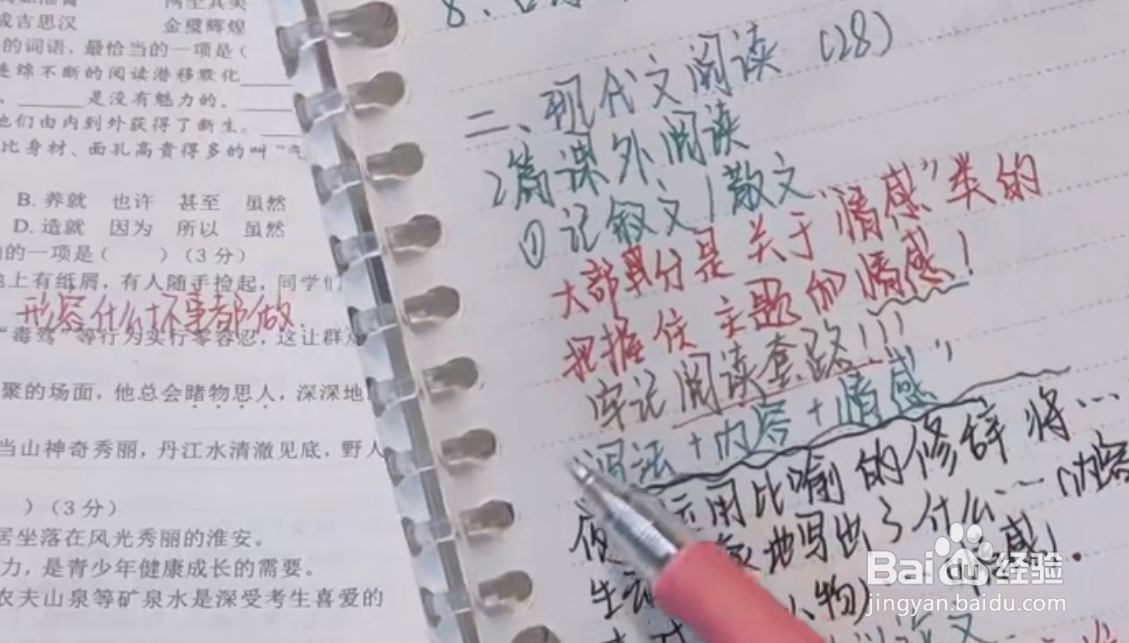 成吉思汉 金璧辉煌
的词语，最恰当的一项是（
连绵不断的阅读潜移默化
是没有魅力的。
他们由内到外获得了新生。
比身材、面孔高贵得多的叫“气
B. 养就 也许 甚至 虽然
D. 造就 因为 所以 虽然
的一项是（ ）（3分）
地上有纸屑，有人随手捡起，同学们
形容什么坏事都做.
“毒驾”等行为实行零容忍，这让群
聚的场面，他总会睹物思人，深深地
当山神奇秀丽，丹江水清澈见底，野人
）（3分）
居坐落在风光秀丽的淮安。
力，是青少年健康成长的需要。
农夫山泉等矿泉水是深受考生喜爱的
8、
二、现代文阅读（28）
2篇课外阅读
①记叙文/散文
大部分是关于“情感”类的
把握住主题的情感！
牢记阅读套路!!!
写法+内容+情感”
运用比喻的修辞 将…
地写出了什么…（内容
情感）.
小物）
Baidu经验
jingyan.baidu.com